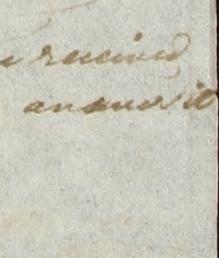 received
answer it